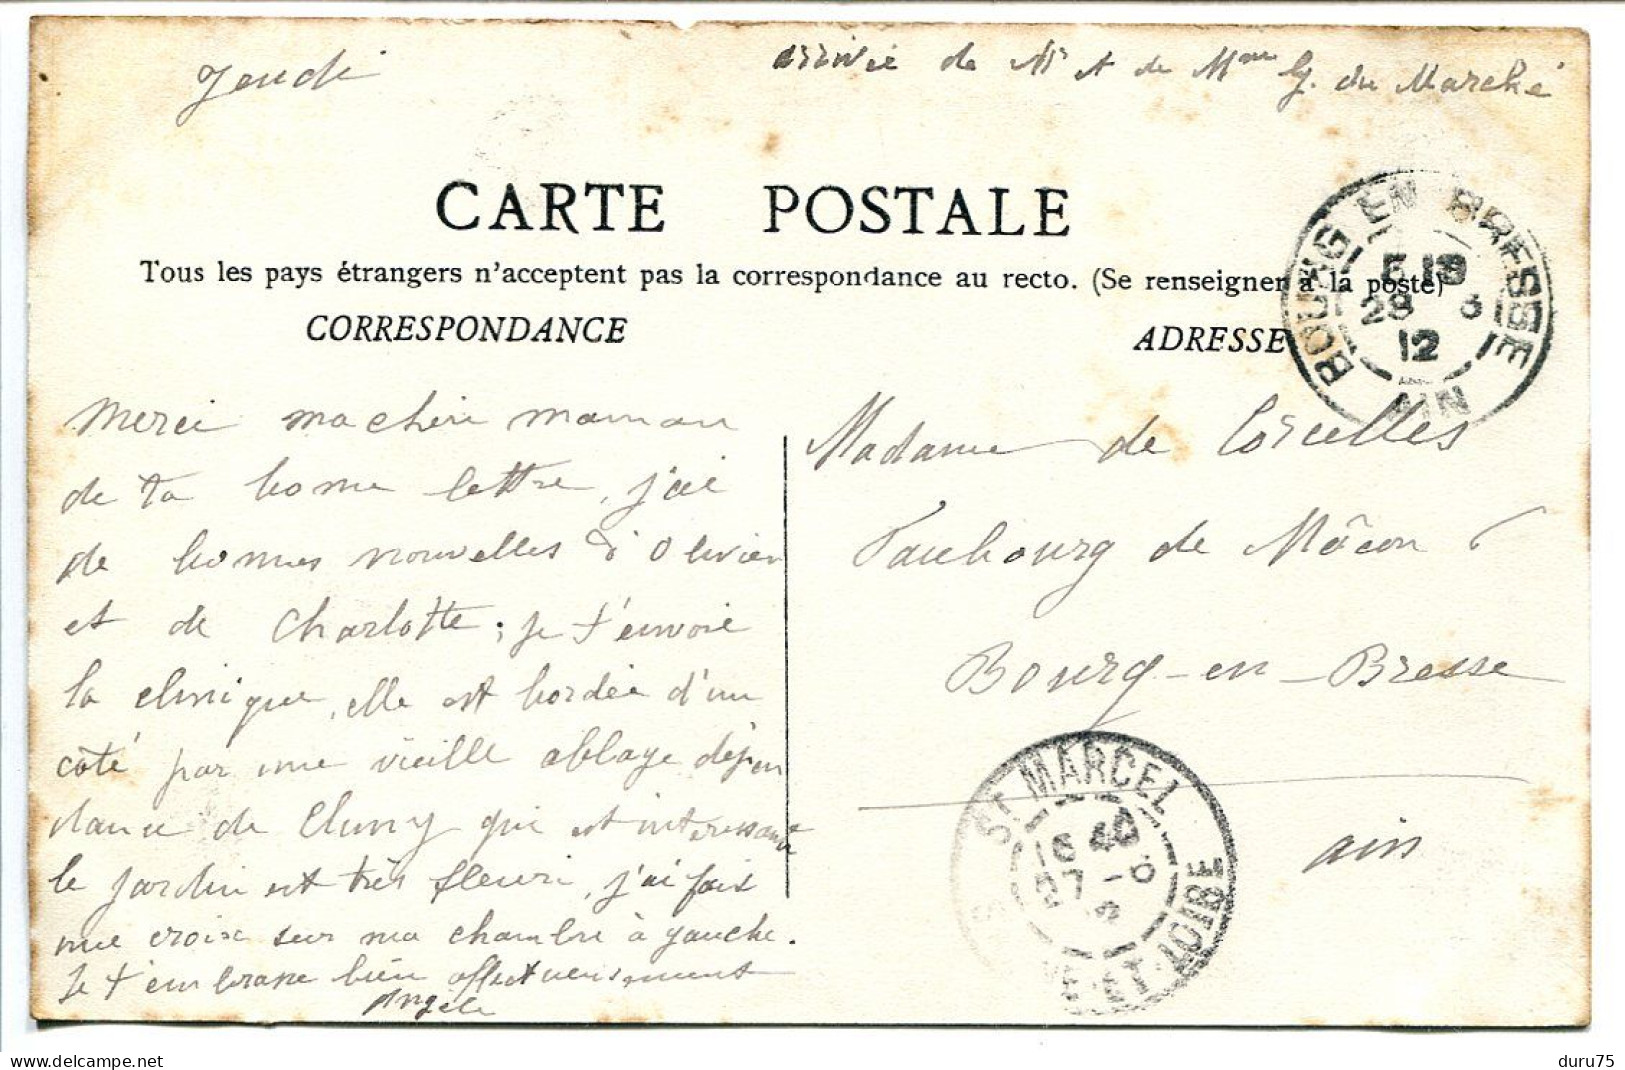 Jeudi
arrivée de Mr et de Mme G. du Marché
CARTE POSTALE
Tous les pays étrangers n'acceptent pas la correspondance au recto. (Se renseigner à la poste)
CORRESPONDANCE
ADRESSE
BOURG EN BRESSE
5 19
28 3
12
AIN
Merci ma chère maman
de ta bonne lettre, j'ai
de bonnes nouvelles d'Olivier
et de Charlotte ; je t'envoie
la clinique, elle est bordée d'un
côté par une vieille abbaye dépen
dance de Cluny qui est intéressante
le jardin est très fleuri, j'ai fais
une croix sur ma chambre à gauche.
Je t'embrasse bien affectueusement
Angèle
Madame de Corcelles
Faubourg de Mâcon 6
Bourg-en-Bresse
ain
ST MARCEL
6 40
27
ET-LOIRE
duru75